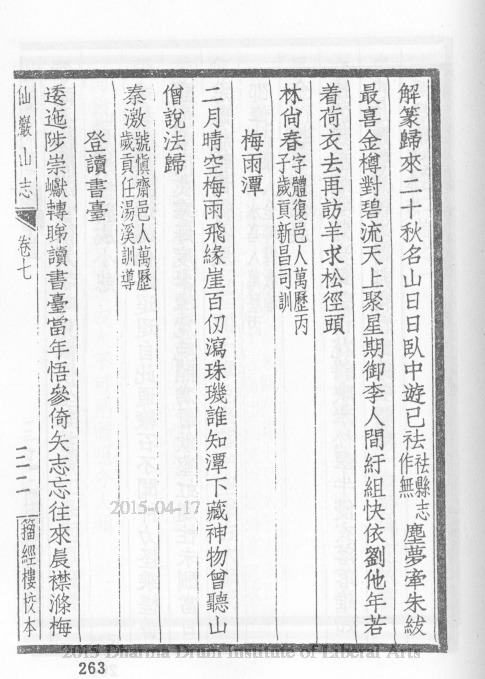 解篆歸來二十秋名山日日臥中遊已祛祛縣志作無塵夢牽朱紱
最喜金樽對碧流天上聚星期御李人間紆組快依劉他年若
着荷衣去再訪羊求松徑頭
林尙春字體復邑人萬歷丙子歲貢新昌司訓
梅雨潭
二月晴空梅雨飛緣崖百仞瀉珠璣誰知潭下藏神物曾聽山
僧說法歸
泰激號愼齋邑人萬歷歲貢任湯溪訓導
登讀書臺
逶迤陟崇巘轉睇讀書臺當年悟參倚矢志忘往來晨襟滌梅
仙巖山志
卷七
三二
籀經樓校本
2015-04-17
2015 Dharma Drum Institute of Liberal Arts
263